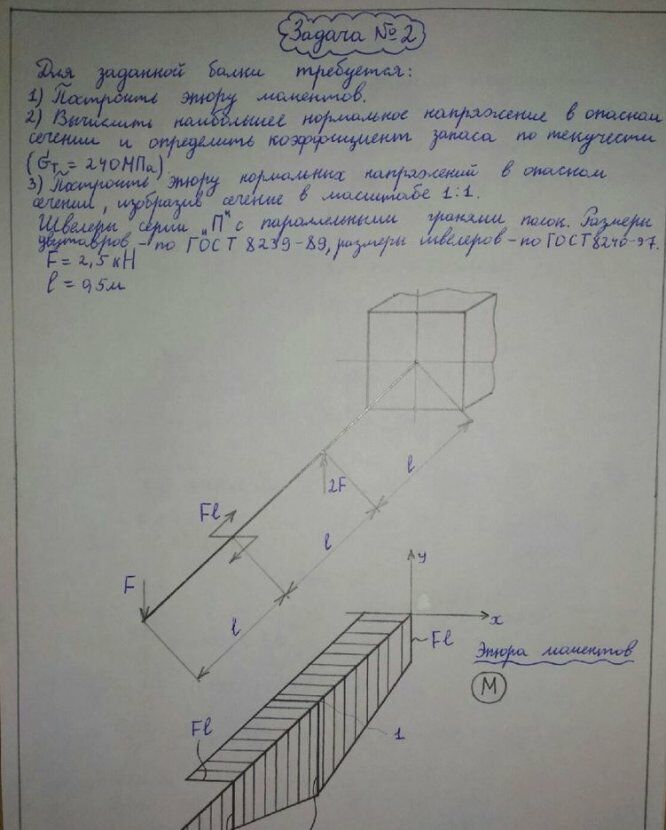 Задача №2
Для заданной балки требуется:
1) Построить эпюру моментов.
2) Вычислить наибольшее нормальное напряжение в опасном
сечении и определить коэффициент запаса по текучести
(σт = 240МПа)
3) Построить эпюру нормальных напряжений в опасном
сечении, изобразив сечение в масштабе 1:1.
Швелеры серии „П" с параллельными гранями полок. Размеры
двутавров - по ГОСТ 8239-89, размеры швелеров - по ГОСТ 8240-97.
F = 2,5 кН
l = 0,5м
l
2F
Fl
l
F
l
y
x
Fl
Эпюра моментов
M
Fl
1